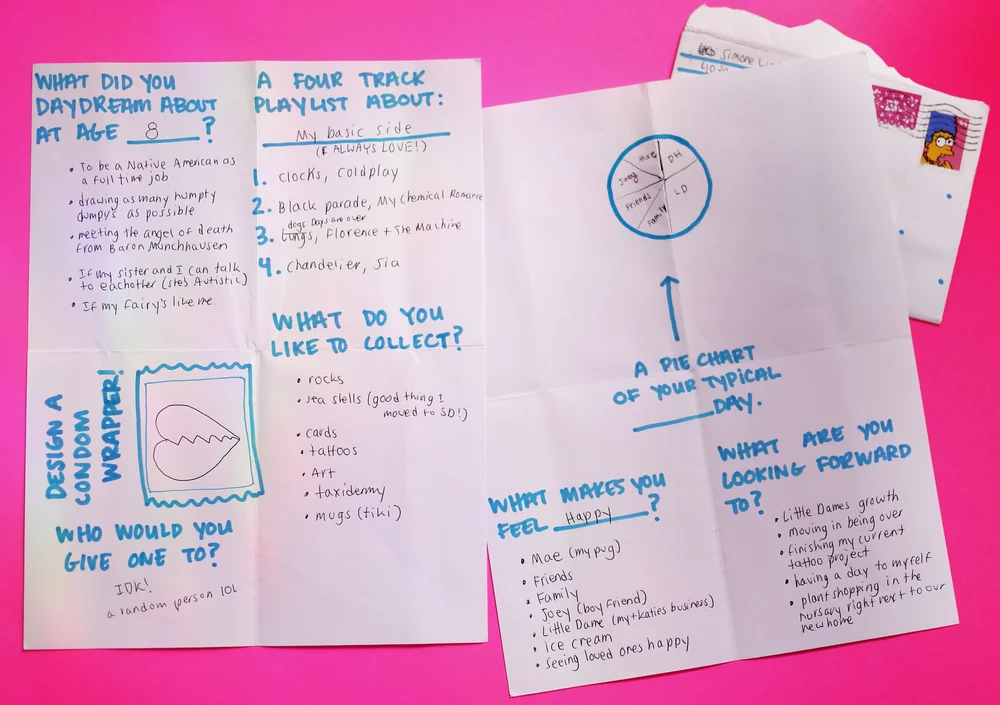 WHAT DID YOU
DAYDREAM ABOUT
AT AGE 8 ?
• To be a Native American as
a full time job
• drawing as many humpty
dumpy's as possible
• meeting the angel of death
from Baron Munchhausen
• If my sister and I can talk
to eachother (she's Autistic)
• If my fairy's like me.
A FOUR TRACK
PLAYLIST ABOUT:
My basic side
(I ALWAYS LOVE!)
1. Clocks, Coldplay
2. Black parade, My Chemical Romance
dogs Days are over
3. Lungs, Florence + The Machine
4. Chandelier, Sia
DESIGN A
CONDOM
WRAPPER!
WHO WOULD YOU
GIVE ONE TO?
IDK!
a random person lol
WHAT DO YOU
LIKE TO COLLECT?
• rocks
• sea shells (good thing I
moved to SD!)
• cards
• tattoos
• Art
• taxidermy
• mugs (tiki)
Simone
Mae
DH
Joey
LD
Friends
Family
A PIE CHART
OF YOUR TYPICAL
DAY.
WHAT MAKES YOU
FEEL Happy ?
• Mae (my pug)
• Friends
• Family
• Joey (boyfriend)
• Little Dame (my + katies business)
• Ice cream
• seeing loved ones happy
WHAT ARE YOU
LOOKING FORWARD
TO?
• Little Dames growth
• moving in being over
• finishing my current
tattoo project
• having a day to myself
• plant shopping in the
nursary right next to our
new home